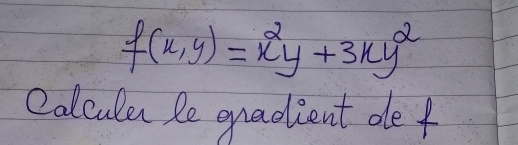 f(x,y) = x²y + 3xy²
Calculer le gradient de f